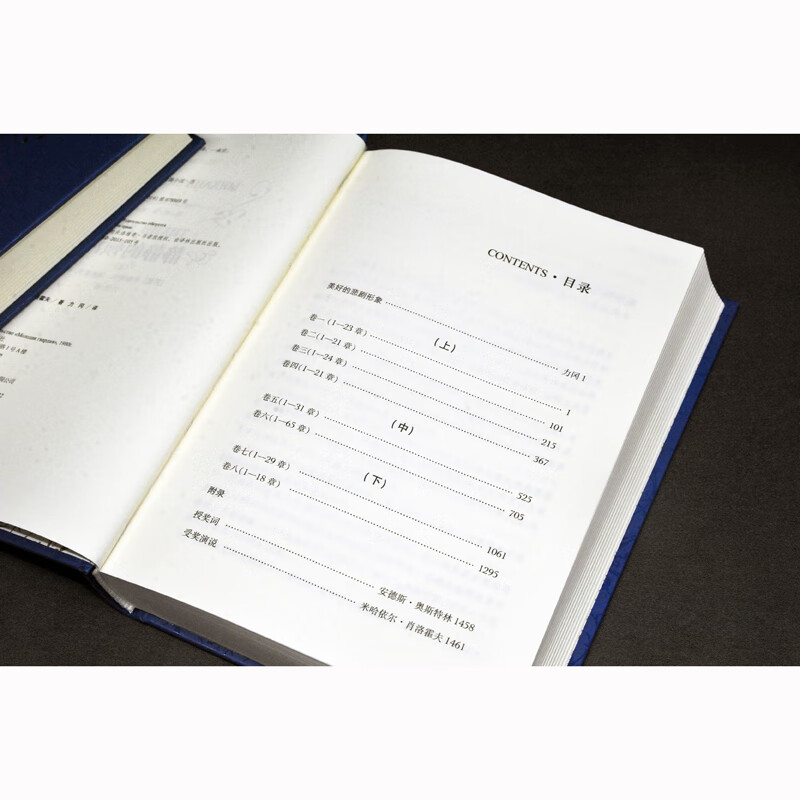 CONTENTS · 目录
美好的悲剧形象 力冈 1
（上）
卷一（1—23 章） 1
卷二（1—21 章） 101
卷三（1—24 章） 215
卷四（1—21 章） 367
（中）
卷五（1—31 章） 525
卷六（1—65 章） 705
（下）
卷七（1—29 章） 1061
卷八（1—18 章） 1295
附录
授奖词 安德斯·奥斯特林 1458
受奖演说 米哈依尔·肖洛霍夫 1461